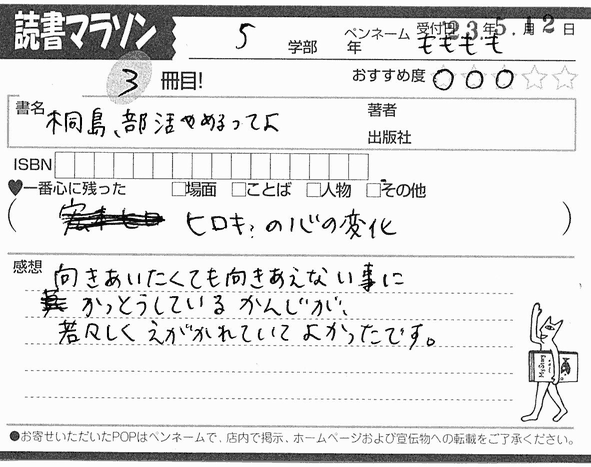 読書マラソン
5 学部 年
ペンネーム もももも
受付日 23年5月12日
3 冊目!
おすすめ度 ○○○☆☆
書名 桐島、部活やめるってよ
著者
出版社
ISBN
♥一番心に残った □場面 □ことば □人物 □その他
( ヒロキ?の心の変化 )
感想
向きあいたくても向きあえない事に
かっとうしているかんじが、
若々しくえがかれていてよかったです。
●お寄せいただいたPOPはペンネームで、店内で掲示、ホームページおよび宣伝物への転載をご了承ください。